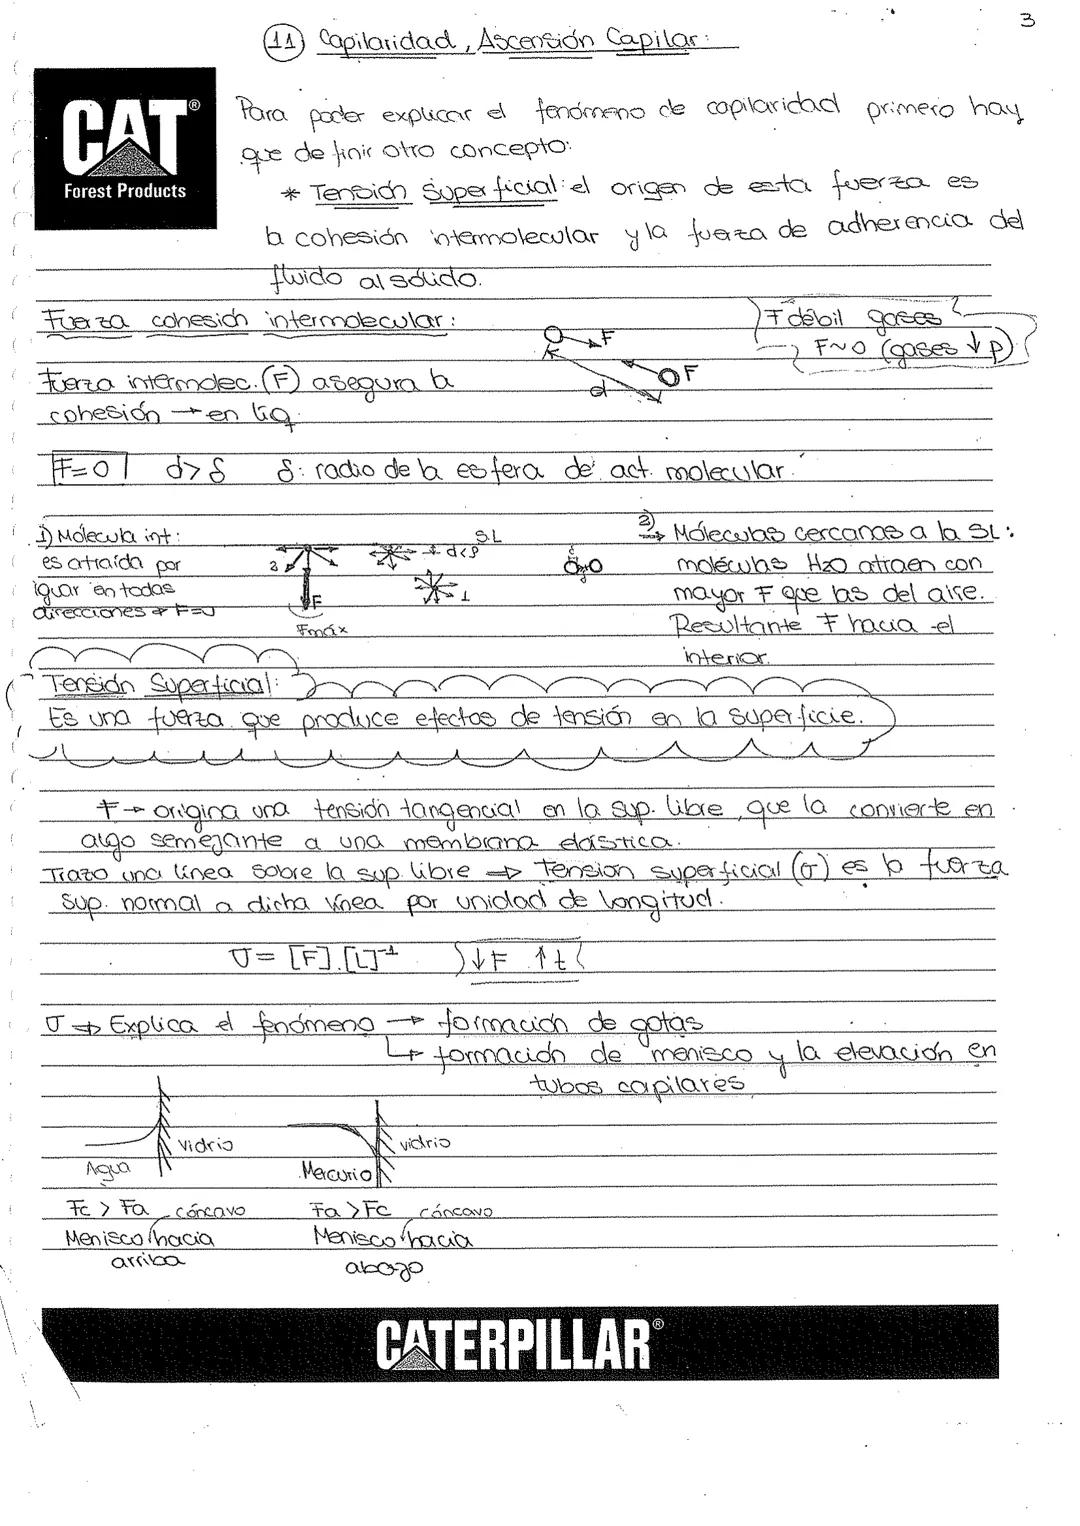 3
11 Capilaridad, Ascensión Capilar:
CAT®
Forest Products
Para poder explicar el fenómeno de capilaridad primero hay
que definir otro concepto:
* Tensión Superficial: el origen de esta fuerza es
la cohesión intermolecular y la fuerza de adherencia del
fluido al sólido.
Fuerza cohesión intermolecular:
F débil gases
F~0 (gases ↓p)
F
F
d
Fuerza intermolec. (F) asegura la
cohesión → en líq.
F=0 d>δ δ: radio de la esfera de act. molecular.
1) Molécula int:
es atraída por
igual en todas
direcciones F=0
SL
2
F
Fmáx
1
2) ⇒ Moléculas cercanas a la SL:
moléculas H2O atraen con
mayor F que las del aire.
Resultante F hacia el
interior.
Tensión Superficial:
Es una fuerza que produce efectos de tensión en la superficie.
F → origina una tensión tangencial en la sup. libre, que la convierte en
algo semejante a una membrana elástica.
Trazo una línea sobre la sup. libre ⇒ Tension superficial (σ) es la fuerza
sup. normal a dicha línea por unidad de longitud.
σ= [F].[L]⁻¹ ↓F ↑t
σ ⇒ Explica el fenómeno → formación de gotas
↳ formación de menisco y la elevación en
tubos capilares
Agua
vidrio
Mercurio
vidrio
Fc > Fa cóncavo
Menisco hacia
arriba
Fa > Fc cóncavo
Menisco hacia
abajo
CATERPILLAR®